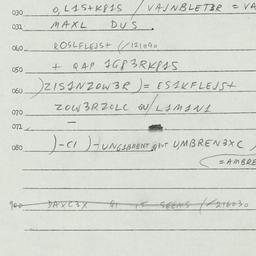 030 0,L1S+K81S / VAJNBLET3R = VA
031 MAXL DUS.
040 ROSLFLEJS+ (/121090
050 + QAP 1G83RK81S
060 )Z1S1NZOW3R)= ES1KFLEJS+
ZOW3RZOLC / L1M1N1
071 —
080 )-C1)-UNGABRENT UMBREN3XC
(=AMBRE
900 DAXC3X 91 IT SEEMS (/216030